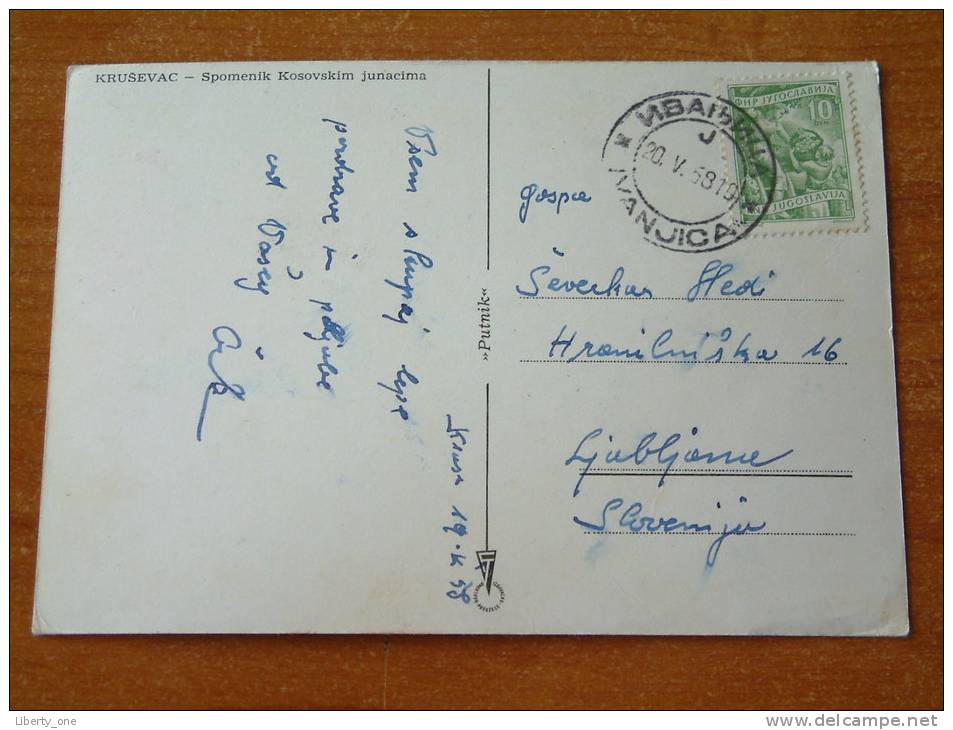 KRUŠEVAC — Spomenik Kosovskim junacima
Vsem skupaj lepe
pozdrave in poljube
od Vašeg
19. V. 58
»Putnik«
ФНР ЈУГОСЛАВИЈА
10
JUGOSLAVIJA
ИВАЊИЦА
Ј
20. V. 58 19
IVANJICA
gospa
Ševerkar Hedi
Hranilniška 16
Ljubljana
Slovenija
Liberty_one
www.delcampe.net